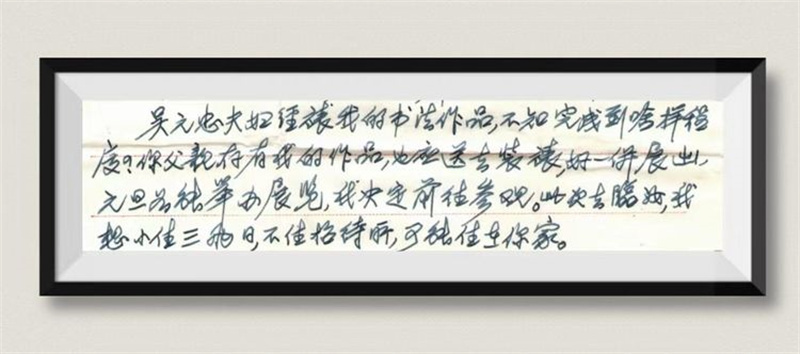 吴元忠夫妇经裱我的书法作品,不知完成到啥样程
度?你父亲存有我的作品,也应送去装裱,好一併展出,
元旦若能举办展览,我决定前往参观。此次去临汝,我
想小住三两日,不住招待所,可能住在你家。